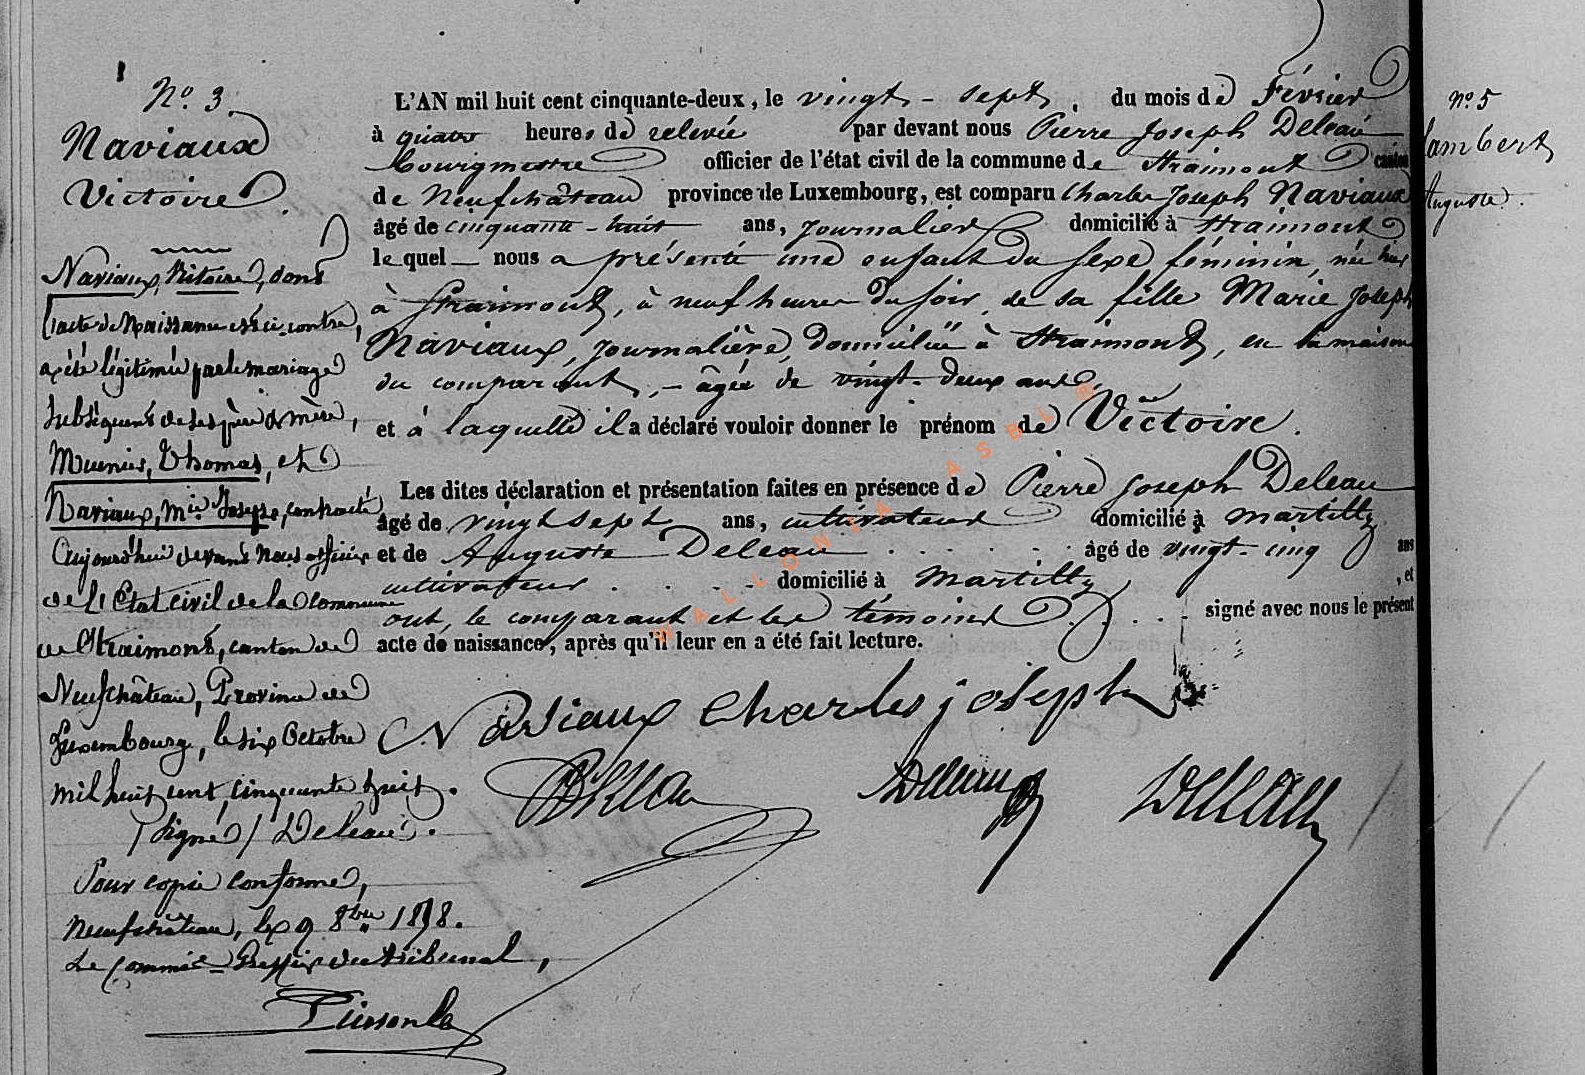 N° 3
Naviaux
Victoire.
Naviaux, Victoire, dont
l'acte de Naissance est ci-contre,
a été légitimée par le mariage
subséquent de ses père & mère,
Meunier, Thomas, et
Naviaux, Mie Joseph, contracté
Aujourd'hui devant Nous officier
de l'Etat civil de la Commune
de Straimont, canton de
Neufchâteau, Province de
Luxembourg, le six Octobre
mil huit cent cinquante huit.
(Signé) Deleau.
Pour copie conforme,
Neufchâteau, le 9 8bre 1858.
Le Commis-Greffier du tribunal,
L'AN mil huit cent cinquante-deux, le vingt-sept, du mois de Février
à quatre heures de relevée par devant nous Pierre Joseph Deleau
bourgmestre officier de l'état civil de la commune de Straimont canton
de Neufchâteau province de Luxembourg, est comparu Charles Joseph Naviaux
âgé de cinquante-huit ans, journalier domicilié à Straimont
lequel nous a présenté une enfant du sexe féminin, née hier
à Straimont, à neuf heures du soir, de sa fille Marie Joseph
Naviaux, journalière, domiciliée à Straimont, en la maison
du comparant, - âgée de vingt-deux ans
et à laquelle il a déclaré vouloir donner le prénom de Victoire.
Les dites déclaration et présentation faites en présence de Pierre Joseph Deleau
âgé de vingt sept ans, cultivateur domicilié à Martilly
et de Auguste Deleau âgé de vingt-cinq ans
cultivateur domicilié à Martilly, et
ont, le comparant et les témoins signé avec nous le présent
acte de naissance, après qu'il leur en a été fait lecture.
Naviaux Charles joseph
Deleau Deleau
WALLONIA ASBL ®
n° 5
Lambert
Auguste.